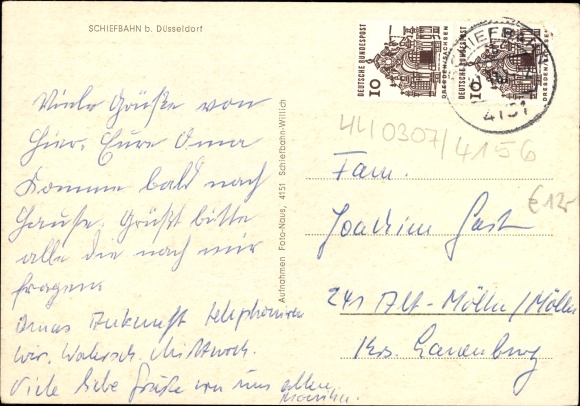 SCHIEFBAHN b. Düsseldorf
Viele Grüße von
hier. Eure Oma
komme bald nach
Hause. Grüßt bitte
alle die nach mir
fragen.
Omas Ankunft telephonieren
wir. Wahrsch. Mittwoch.
Viele liebe Grüße von uns allen
Aufnahmen Foto-Naus, 4151 Schiefbahn-Willich
10 DEUTSCHE BUNDESPOST DRESDEN/SACHSEN
10 DRESDEN/SACHSEN
SCHIEFBAHN
4151
44/0307/4156
€ 12,-
Fam.
Joachim Gast
241 Alt-Mölln/Mölln
Krs. Lauenburg